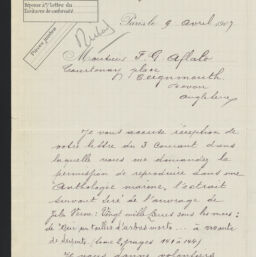 Réponse à v/ lettre du
Paris le 9 avril 1907
Pièces jointes
Monsieur F. G. Aflalo
Courtenay place
Teignmouth
Devon
Angleterre
Je vous accuse réception de
votre lettre du 3 Courant dans
laquelle vous me demandez la
permission de reproduire dans une
Anthologie marine, l'extrait
suivant tiré de l'ouvrage de
Jules Verne: Vingt mille lieues sous les mers:
de "Bien
d'arbres morts... à
(tome I, pages 141 à 144)
Je vous donne volontiers